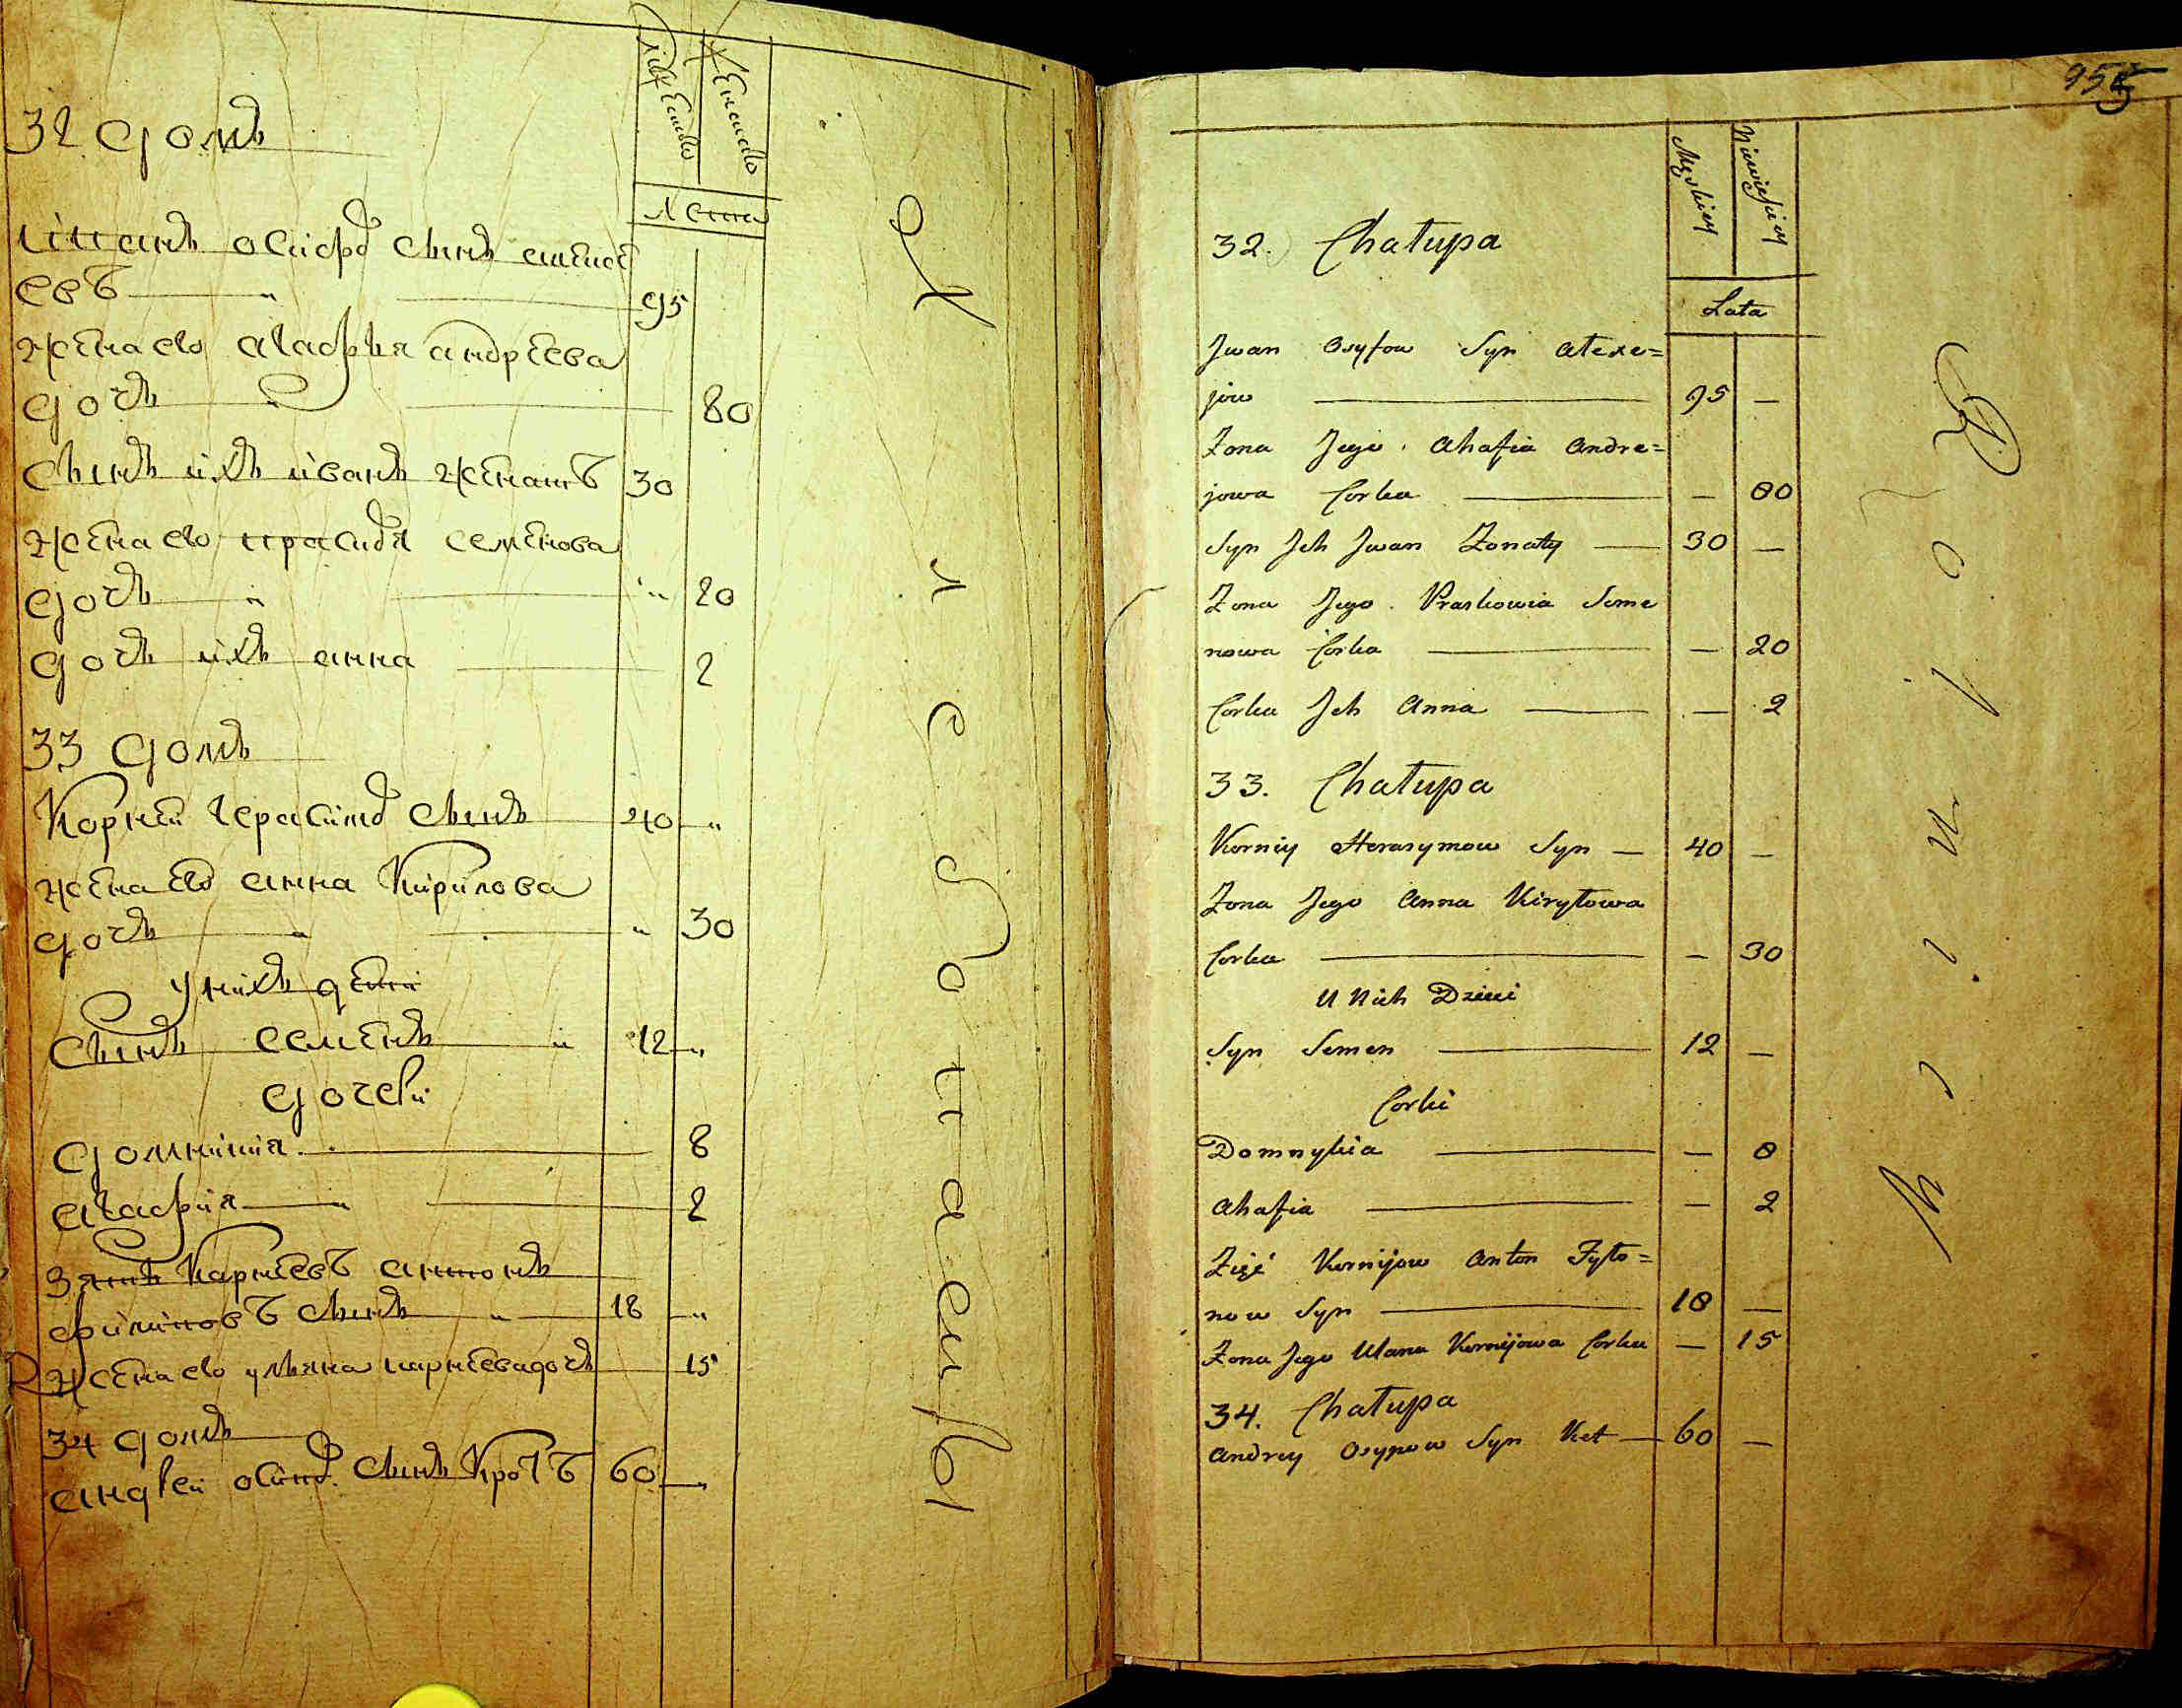 32 домъ
Мужеска
Женска
лета
иванъ осифовъ сынъ алексе
евъ 95
жена его агафья андреева
дочь 80
сынъ ихъ иванъ женатъ 30
жена его прасковя семенова
дочь 20
дочь ихъ анна 2
33 домъ
Корней герасимовъ сынъ 40
жена его анна Кирилова
дочь 30
у нихъ дети
сынъ семенъ 12
дочери
домникия 8
агафия 2
зять Карнеевъ антонъ
филиповъ сынъ 18
жена его ульяна карнеева дочь 15
34 домъ
андрей осиповъ сынъ Кротъ 60
955
32. Chałupa
Męskiey
Niewieściey
Lata
Jwan Osyfow Syn Alexe=
jow — 95 —
Zona Jego Ahafia Andre=
jowa Corka — — 80
Syn Jch Jwan Zonaty — 30 —
Zona Jego Praskowia Seme
nowa Corka — — 20
Corka Jch Anna — — 2
33. Chałupa
Korniy Herasymow Syn — 40 —
Zona Jego Anna Kiryłowa
Corka — — 30
U Nich Dzieci
Syn Semen — 12 —
Corki
Domnykia — — 8
Ahafia — — 2
Zięć Kornijow Anton Fyło=
now Syn — 18 —
Zona Jego Ulana Kornijowa Corka — 15
34. Chałupa
Andrey Osypow Syn Ket — 60 —